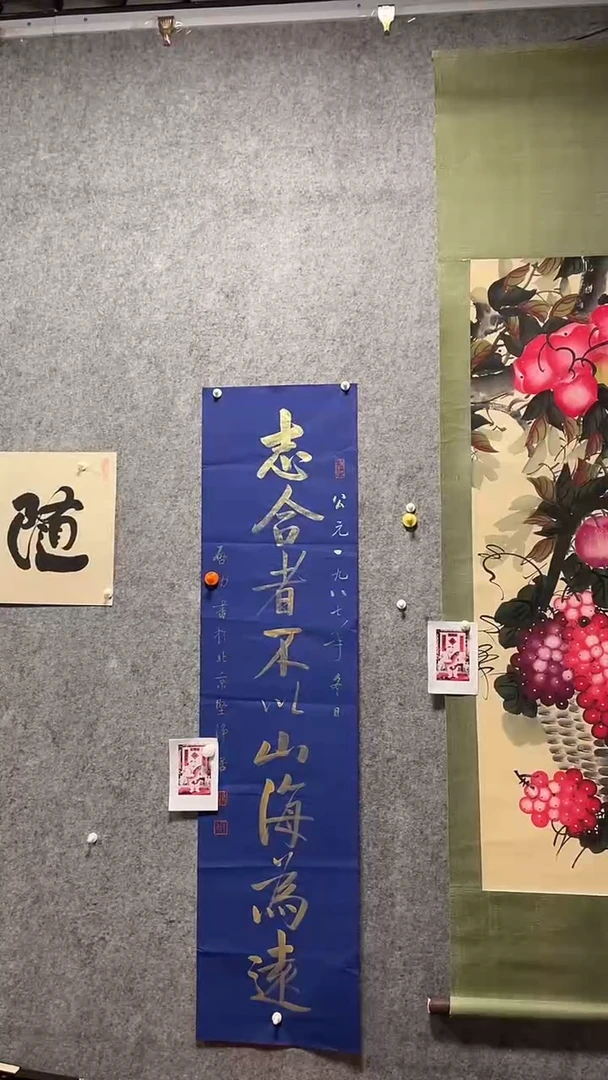 公元一九八七年冬日
志合者不以山海為遠
启功書於北京堅净居
随